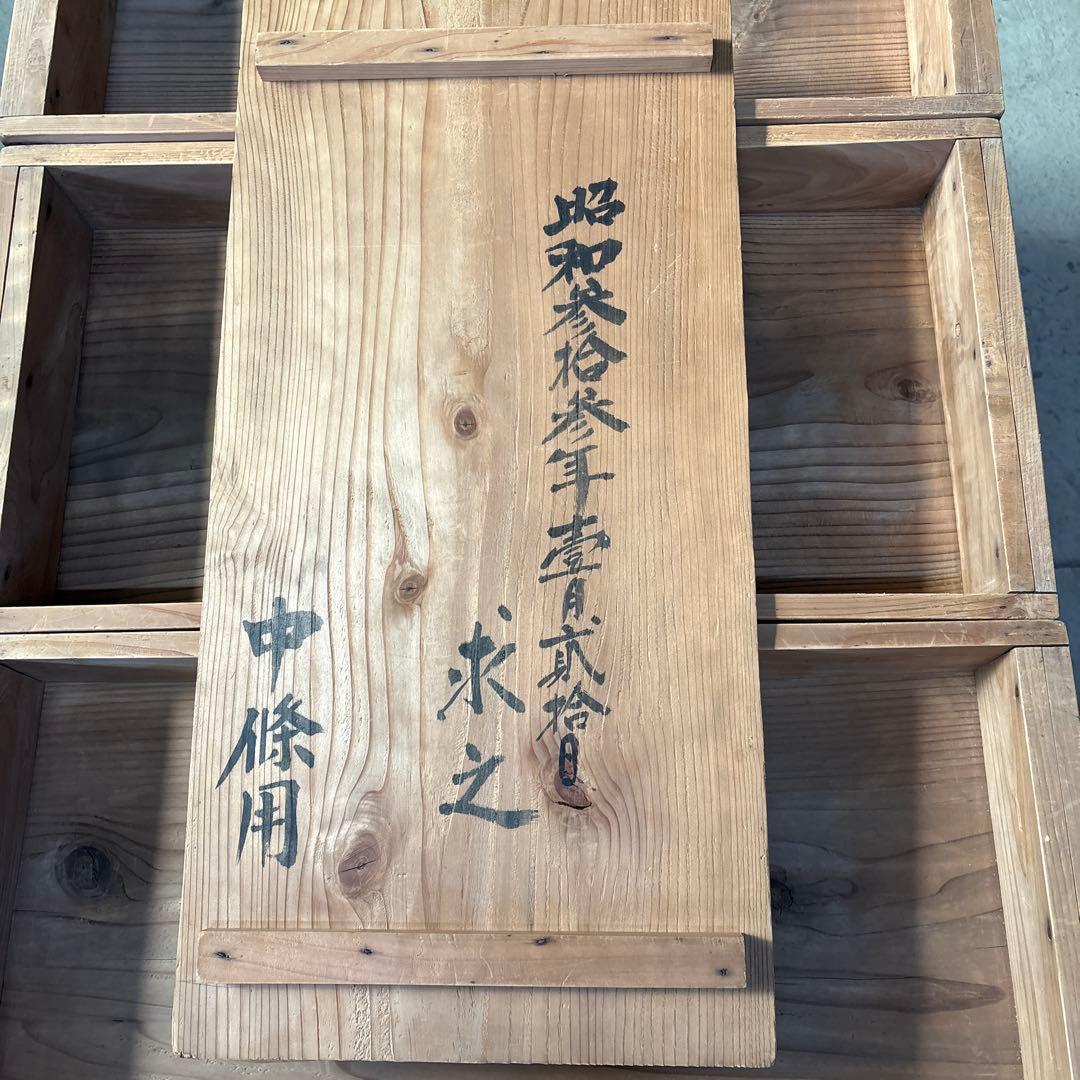 昭和参拾参年壹月貳拾日
求之
中條用